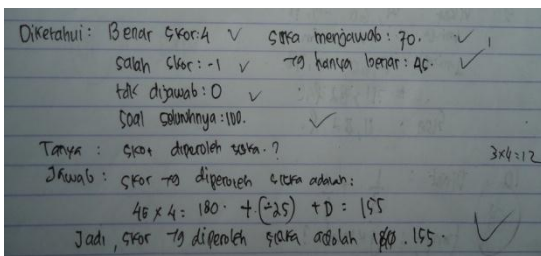 Diketahui : Benar Skor : 4 ✓ Siska menjawab : 70. ✓
Salah Skor : -1 ✓ yg hanya benar : 45. ✓
tdk dijawab : 0 ✓
Soal seluruhnya : 100. ✓
Tanya : Skor diperoleh siska . ?
3x4=12
Jawab : Skor yg diperoleh siska adalah :
45 x 4 = 180 . + (-25) + 0 = 155
Jadi , skor yg diperoleh siska adalah 155 . ✓